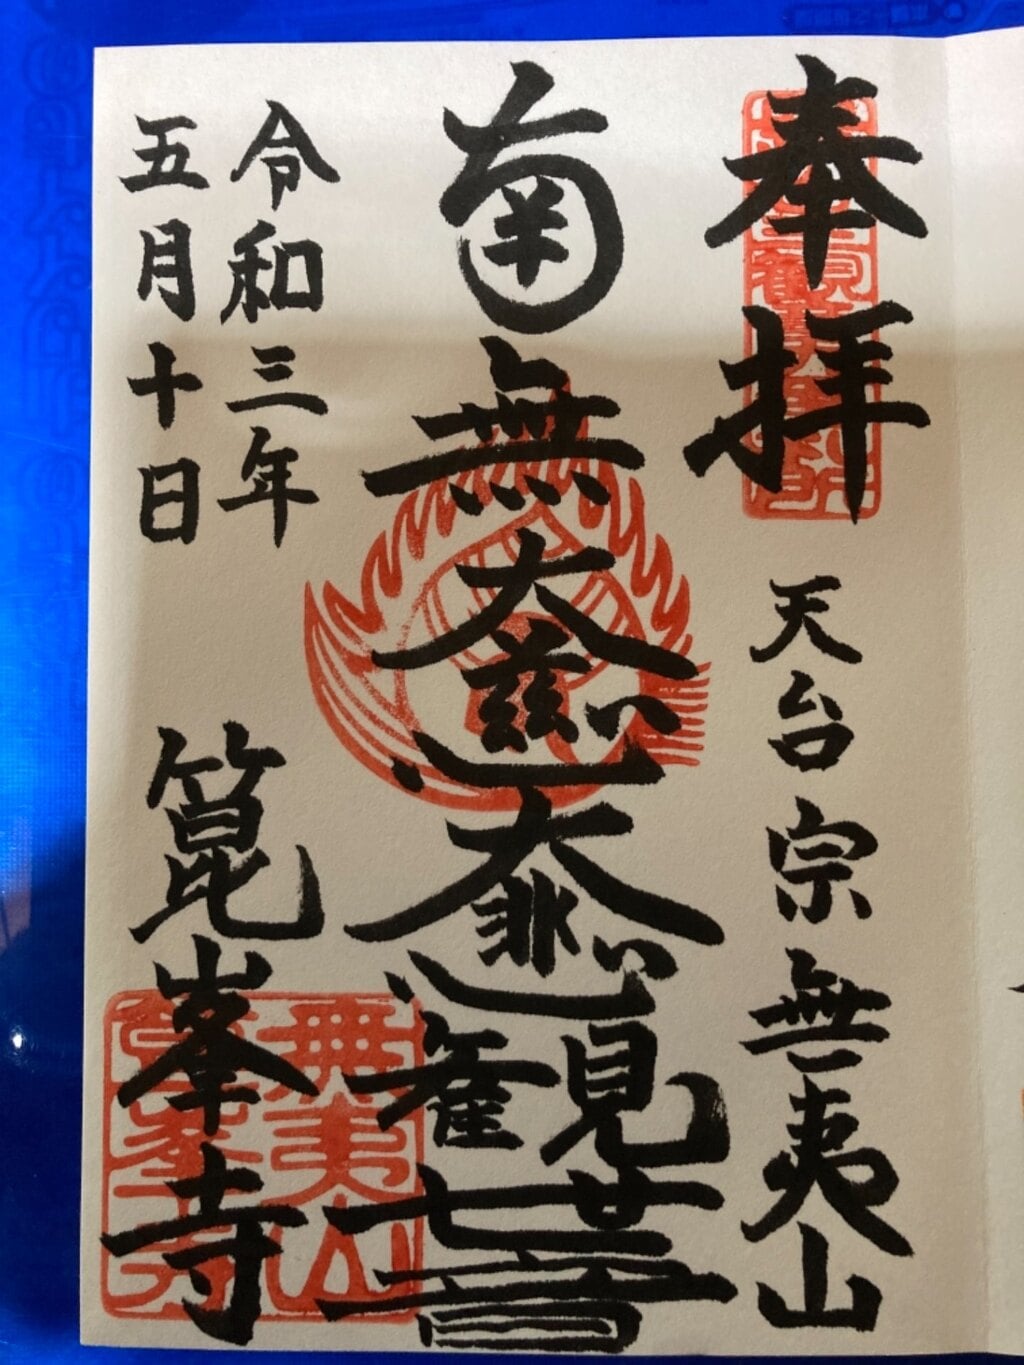 奉拝
天台宗無夷山
南無大慈大悲観世音
令和三年
五月十日
箟峯寺
無夷山
箟峯寺